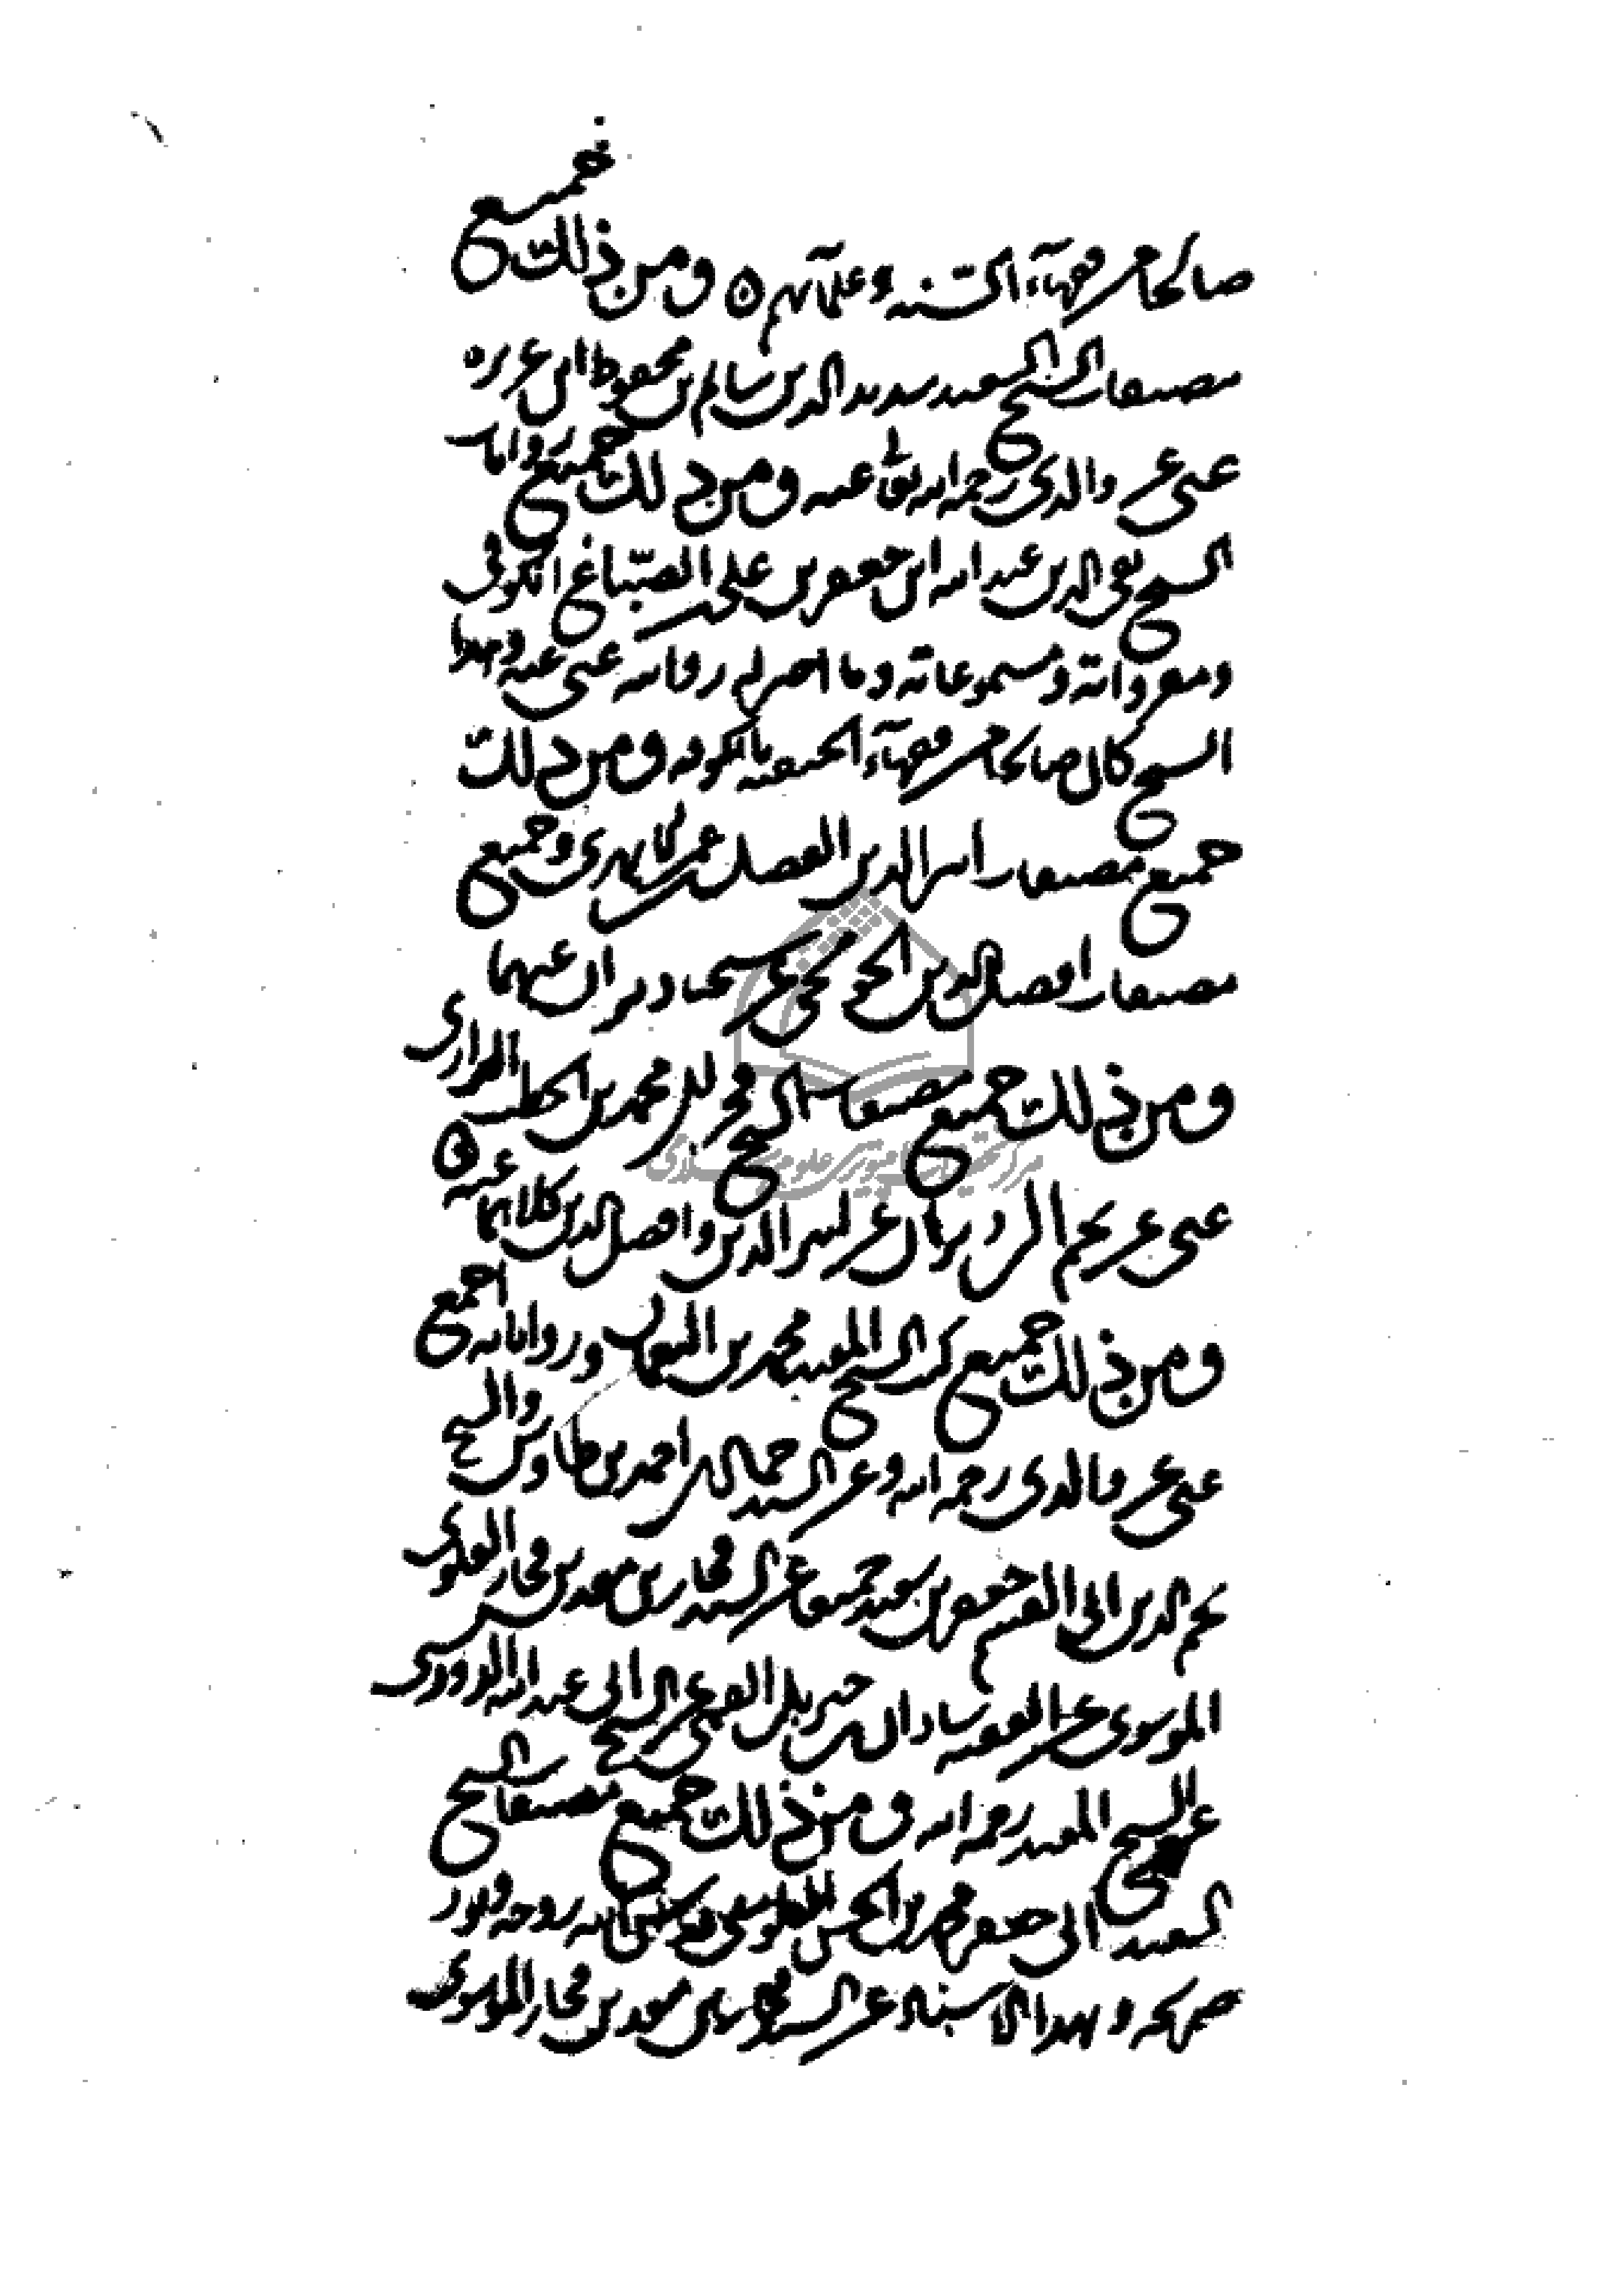 صالحا من فقهاء السنه وعلمائهم ه ومن ذلك جميع
مصنفات الشيخ السعيد سديد الدين سالم بن محفوظ ابن عزيزه
عنى عن والدى رحمه الله تعالى عنه ومن ذلك جميع روايات
الشيخ تقى الدين عبد الله ابن جعفر بن على الصبّاغ الكوفى
ومقرواته ومسموعاته وما اجيز له روايته عنى عنه وهذا
الشيخ كان صالحا من فقهاء الحنفيه بالكوفه ومن ذلك
جميع مصنفات اثير الدين الفضل بن عمر الابهرى وجميع
مصنفات افضل الدين الخونجى عن شيخنا دبيران عنهما
ومن ذلك جميع مصنفات الشيخ فخر الدين محمد بن الخطيب الرازى
عنى عن نجم الدين دبيران عن اثير الدين وافضل الدين كلاهما عنه ه
ومن ذلك جميع كتب الشيخ المفيد محمد بن النعمان ورواياته اجمع
عنى عن والدى رحمه الله وعن السيد جمال الدين احمد بن طاوس والشيخ
نجم الدين ابى القسم جعفر بن سعيد جميعا عن السيد فخار بن معد بن فخار العلوى
الموسوى عن الفقيه شاذان بن جبريل القمى عن الشيخ ابى عبد الله الدوريستى
عن الشيخ المفيد رحمه الله ومن ذلك جميع مصنفات الشيخ
السعيد ابى جعفر محمد بن الحسن الطوسى قدس الله روحه ونور
ضريحه وبهذا الاسناد عن السيد فخار بن معد بن فخار الموسوى